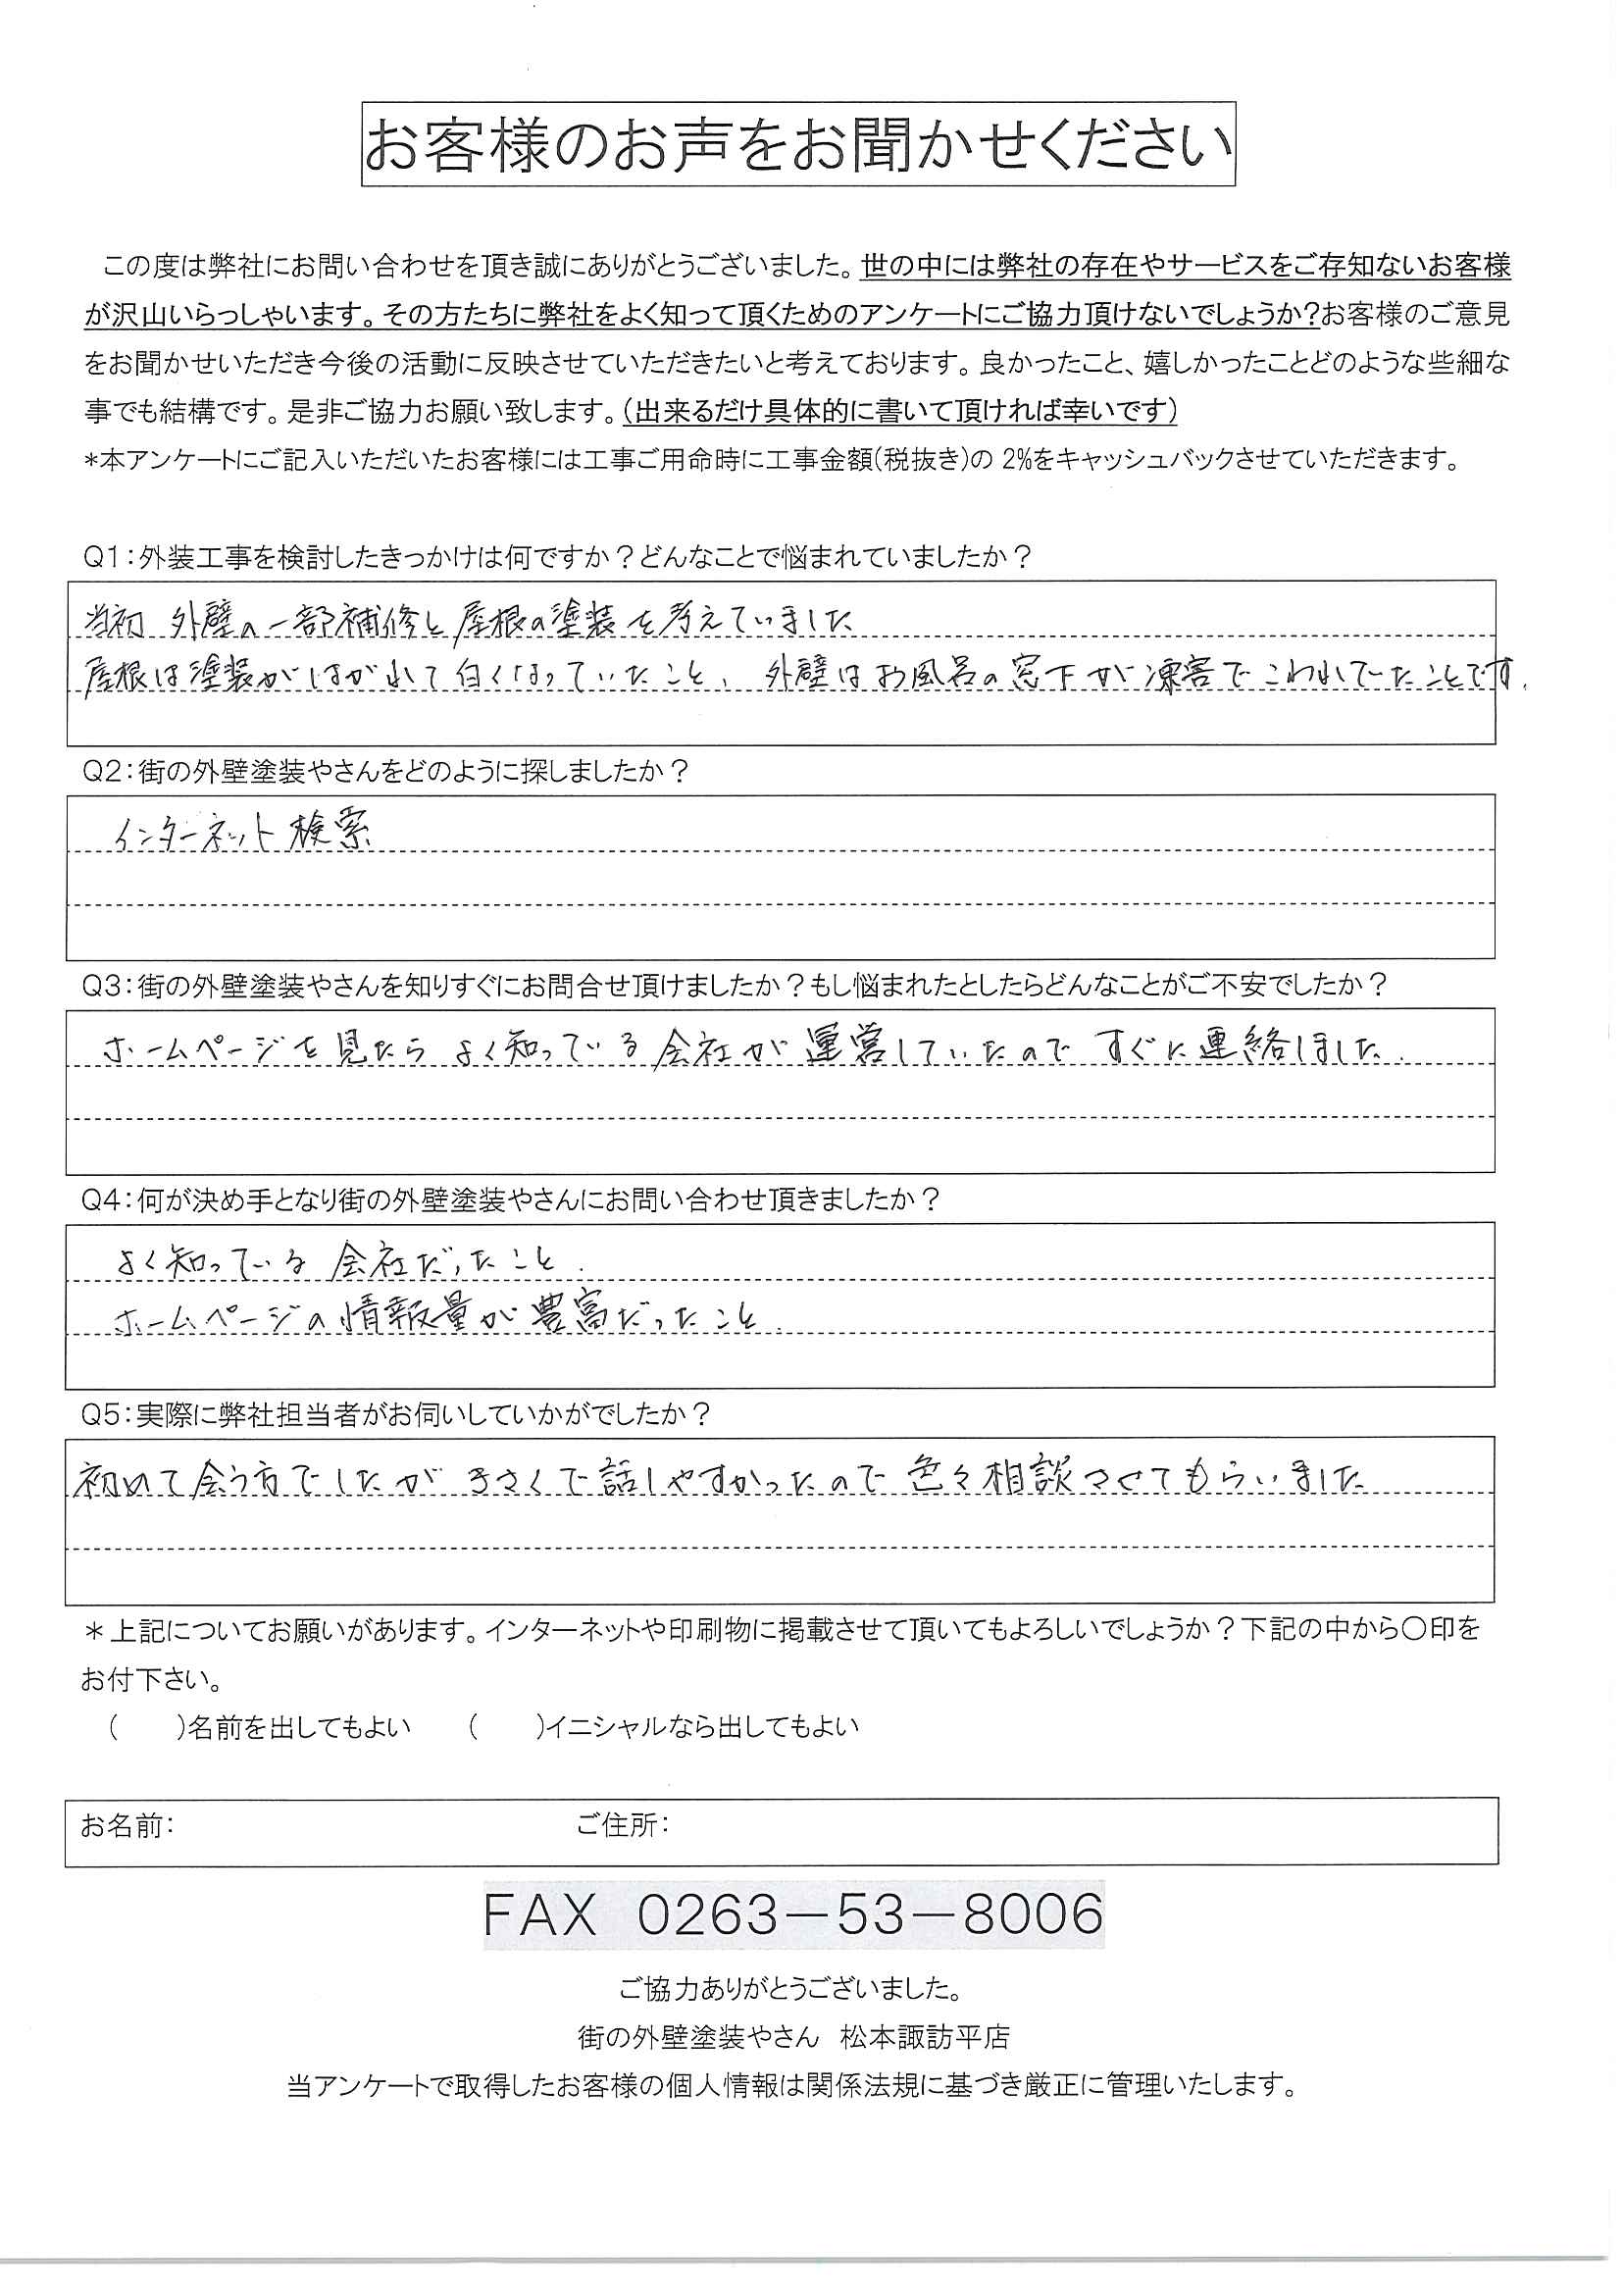 お客様のお声をお聞かせください
この度は弊社にお問い合わせを頂き誠にありがとうございました。世の中には弊社の存在やサービスをご存知ないお客様
が沢山いらっしゃいます。その方たちに弊社をよく知って頂くためのアンケートにご協力頂けないでしょうか?お客様のご意見
をお聞かせいただき今後の活動に反映させていただきたいと考えております。良かったこと、嬉しかったことどのような些細な
事でも結構です。是非ご協力お願い致します。(出来るだけ具体的に書いて頂ければ幸いです)
*本アンケートにご記入いただいたお客様には工事ご用命時に工事金額(税抜き)の 2%をキャッシュバックさせていただきます。
Q1:外装工事を検討したきっかけは何ですか?どんなことで悩まれていましたか?
当初 外壁の一部補修と屋根の塗装を考えていました
屋根は塗装がはがれて白くなっていたこと、外壁はお風呂の窓下が凍害でこわれていたことです.
Q2:街の外壁塗装やさんをどのように探しましたか?
インターネット検索
Q3:街の外壁塗装やさんを知りすぐにお問合せ頂けましたか?もし悩まれたとしたらどんなことがご不安でしたか?
ホームページを見たら よく知っている会社が運営していたので すぐに連絡しました.
Q4:何が決め手となり街の外壁塗装やさんにお問い合わせ頂きましたか?
よく知っている会社だったこと.
ホームページの情報量が豊富だったこと.
Q5:実際に弊社担当者がお伺いしていかがでしたか?
初めて会う方でしたが きさくで話しやすかったので 色々相談させてもらいました
*上記についてお願いがあります。インターネットや印刷物に掲載させて頂いてもよろしいでしょうか?下記の中から〇印を
お付下さい。
(　　)名前を出してもよい　(　　)イニシャルなら出してもよい
お名前:　ご住所:
FAX 0263-53-8006
ご協力ありがとうございました。
街の外壁塗装やさん 松本諏訪平店
当アンケートで取得したお客様の個人情報は関係法規に基づき厳正に管理いたします。